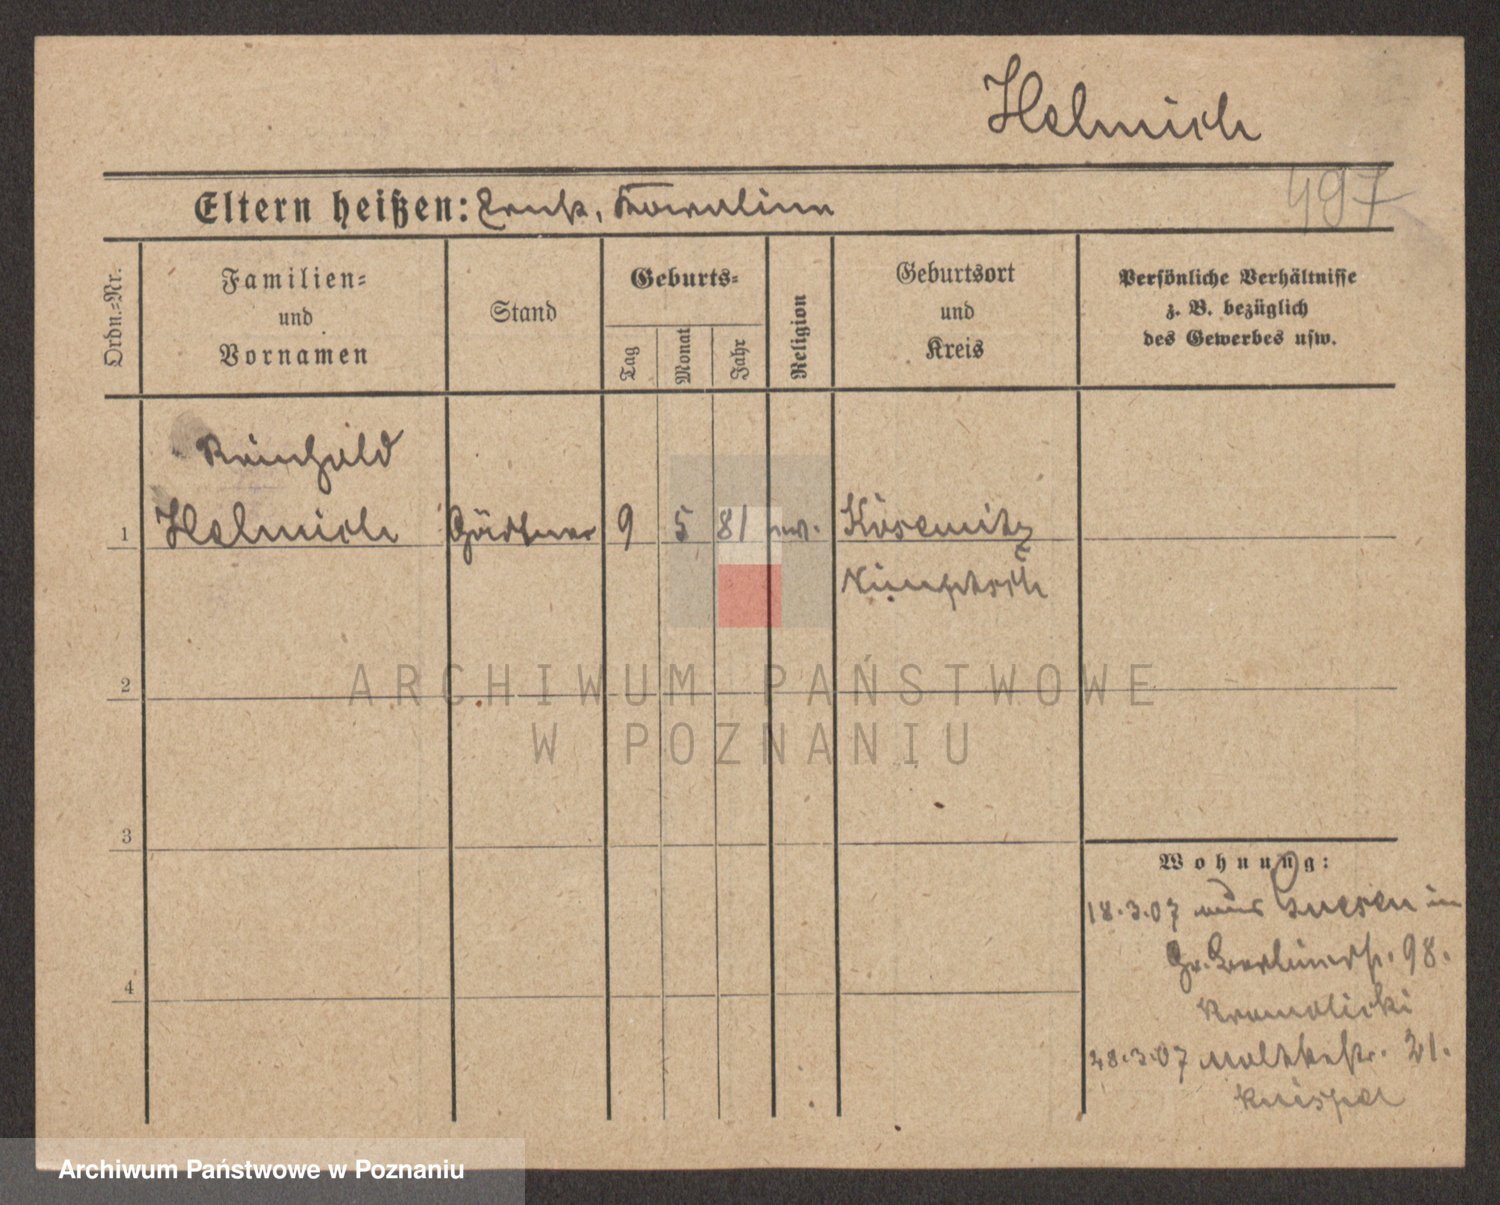 Helmich
Eltern heißen: Ernst, Karoline
497
Ordn.-Nr.
Familien-
und
Vornamen
Stand
Geburts-
Tag
Monat
Jahr
Religion
Geburtsort
und
Kreis
Persönliche Verhältnisse
z. B. bezüglich
des Gewerbes usw.
Reinhold
1 Helmich Gärtner 9 5 81 Kösemitz
Nimptsch
ARCHIWUM PAŃSTWOWE
2
W POZNANIU
3
Wohnung:
18.3.07 aus Gnesen in
Gr. Berlinerstr. 98.
4
Kromolicki
28.3.07 Moltkestr. 21.
Archiwum Państwowe w Poznaniu